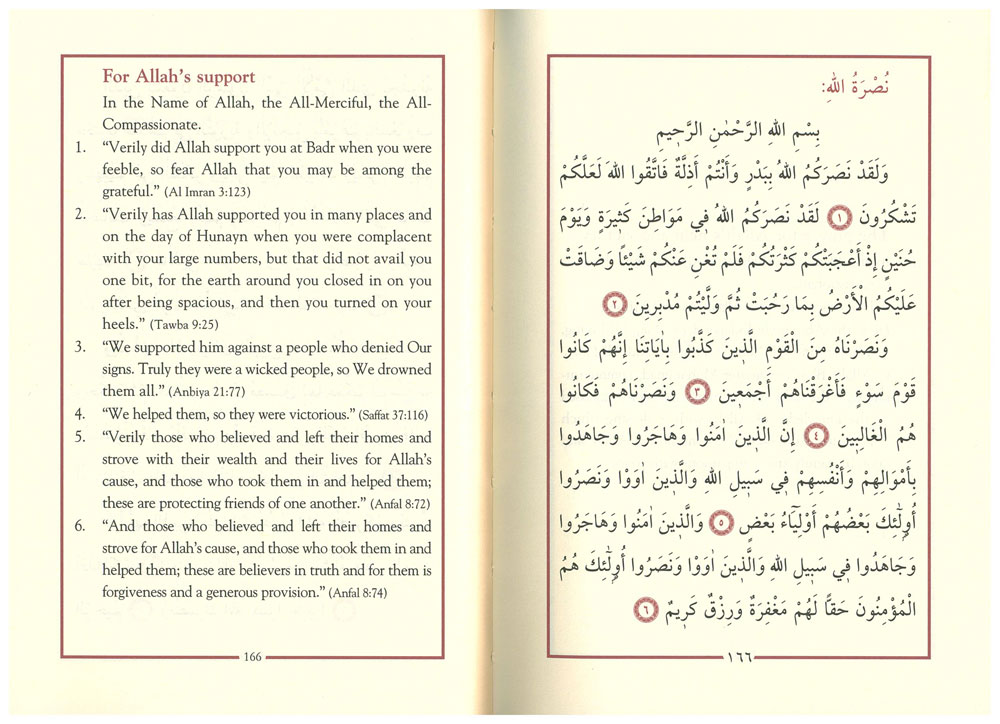 For Allah's support
In the Name of Allah, the All-Merciful, the All-
Compassionate.
1. “Verily did Allah support you at Badr when you were
feeble, so fear Allah that you may be among the
grateful.” (Al Imran 3:123)
2. “Verily has Allah supported you in many places and
on the day of Hunayn when you were complacent
with your large numbers, but that did not avail you
one bit, for the earth around you closed in on you
after being spacious, and then you turned on your
heels.” (Tawba 9:25)
3. “We supported him against a people who denied Our
signs. Truly they were a wicked people, so We drowned
them all.” (Anbiya 21:77)
4. “We helped them, so they were victorious.” (Saffat 37:116)
5. “Verily those who believed and left their homes and
strove with their wealth and their lives for Allah's
cause, and those who took them in and helped them;
these are protecting friends of one another.” (Anfal 8:72)
6. “And those who believed and left their homes and
strove for Allah's cause, and those who took them in and
helped them; these are believers in truth and for them is
forgiveness and a generous provision.” (Anfal 8:74)
166
نُصْرَةُ اللهِ:
بِسْمِ اللهِ الرَّحْمٰنِ الرَّحِيمِ
وَلَقَدْ نَصَرَكُمُ اللهُ بِبَدْرٍ وَأَنْتُمْ أَذِلَّةٌ فَاتَّقُوا اللهَ لَعَلَّكُمْ
تَشْكُرُونَ ١ لَقَدْ نَصَرَكُمُ اللهُ فِي مَوَاطِنَ كَثِيرَةٍ وَيَوْمَ
حُنَيْنٍ إِذْ أَعْجَبَتْكُمْ كَثْرَتُكُمْ فَلَمْ تُغْنِ عَنْكُمْ شَيْئًا وَضَاقَتْ
عَلَيْكُمُ الْأَرْضُ بِمَا رَحُبَتْ ثُمَّ وَلَّيْتُمْ مُدْبِرِينَ ٢
وَنَصَرْنَاهُ مِنَ الْقَوْمِ الَّذِينَ كَذَّبُوا بِاٰيَاتِنَا إِنَّهُمْ كَانُوا
قَوْمَ سَوْءٍ فَأَغْرَقْنَاهُمْ أَجْمَعِينَ ٣ وَنَصَرْنَاهُمْ فَكَانُوا
هُمُ الْغَالِبِينَ ٤ إِنَّ الَّذِينَ اٰمَنُوا وَهَاجَرُوا وَجَاهَدُوا
بِأَمْوَالِهِمْ وَأَنْفُسِهِمْ فِي سَبِيلِ اللهِ وَالَّذِينَ اٰوَوْا وَنَصَرُوا
أُولٰٓئِكَ بَعْضُهُمْ أَوْلِيَٓاءُ بَعْضٍ ٥ وَالَّذِينَ اٰمَنُوا وَهَاجَرُوا
وَجَاهَدُوا فِي سَبِيلِ اللهِ وَالَّذِينَ اٰوَوْا وَنَصَرُوا أُولٰٓئِكَ هُمُ
الْمُؤْمِنُونَ حَقًّا لَهُمْ مَغْفِرَةٌ وَرِزْقٌ كَرِيمٌ ٦
١٦٦